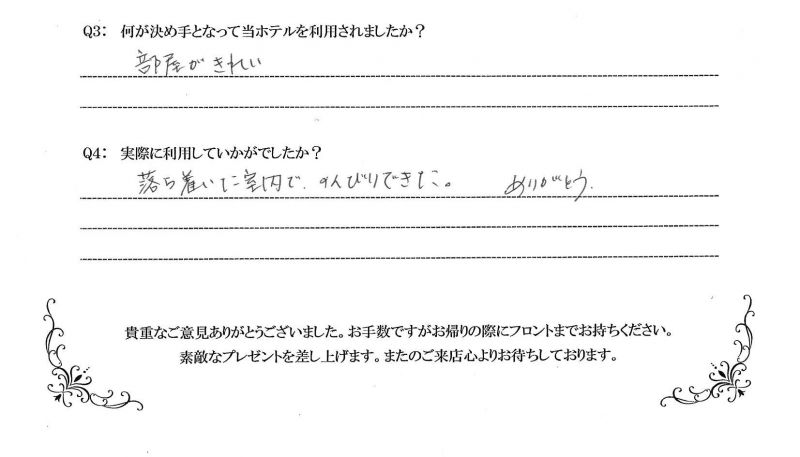 Q3: 何が決め手となって当ホテルを利用されましたか?
部屋がきれい
Q4: 実際に利用していかがでしたか?
落ち着いた室内で、のんびりできた。 ありがとう。
貴重なご意見ありがとうございました。お手数ですがお帰りの際にフロントまでお持ちください。
素敵なプレゼントを差し上げます。またのご来店心よりお待ちしております。